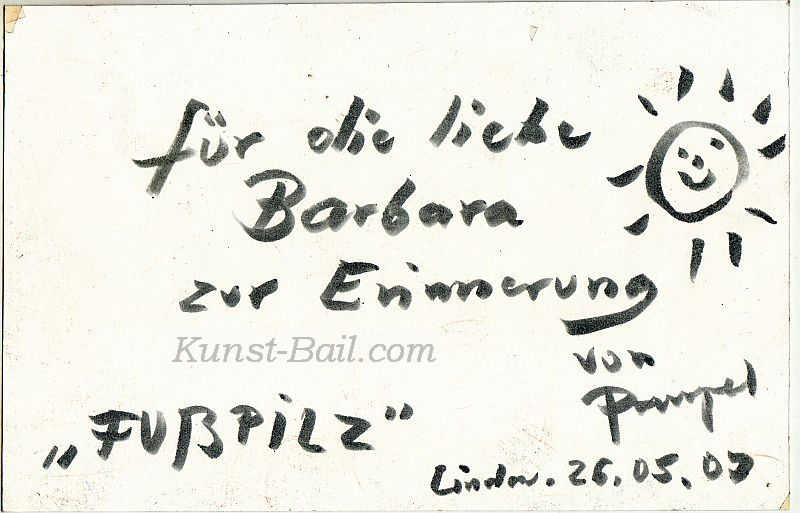 für die liebe
Barbara
zur Erinnerung
Kunst-Bail.com
von
„FUßPiLZ”
26.05.07.